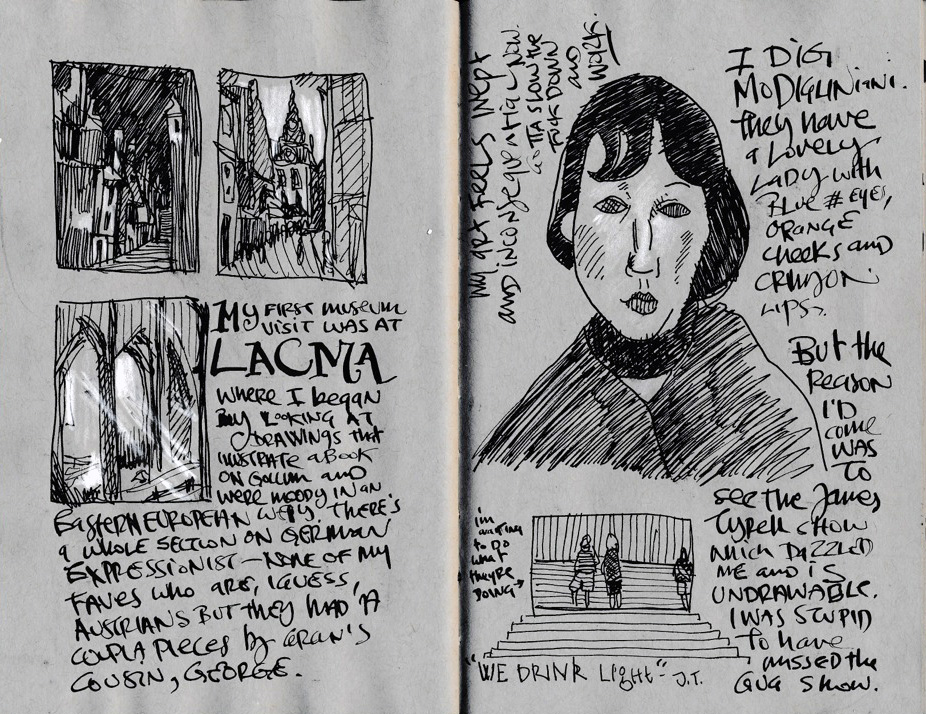 My FIRST MUSEUM
VISIT WAS AT
LACMA
WHERE I began
My LOOKING AT
DRAWINGS that
ILLUSTRATE a BOOK
ON GOLLUM and
WERE MOODY IN AN
EASTERN EUROPEAN WAY. THERE'S
a WHOLE SECTION ON GERMAN
EXPRESSIONIST — NONE OF MY
FAVES WHO ARE, I GUESS,
AUSTRIANS BUT THEY HAD A
COUPLA PIECES by GRAN'S
COUSIN, GEORGE.
My ART FEELS INEPT
and INCONSEQUENTIAL NOW.
GOTTA SLOW the
FUCK DOWN
and
WORK.
I DIG
MODIGLINIANI.
They have
a LOVELY
LADY with
BLUE # EYES,
ORANGE
cheeks and
CRIMSON
LIPS.
BUT the
REASON
I'D
come
WAS
TO
see the James
TYRELL SHOW
which DAZZLED
ME and IS
UNDRAWABLE.
I WAS STUPID
TO have
missed the
GUG SHOW.
I'm
waiting
to DO
what
they're
DOING
"WE DRINK LIGHT" - J.T.